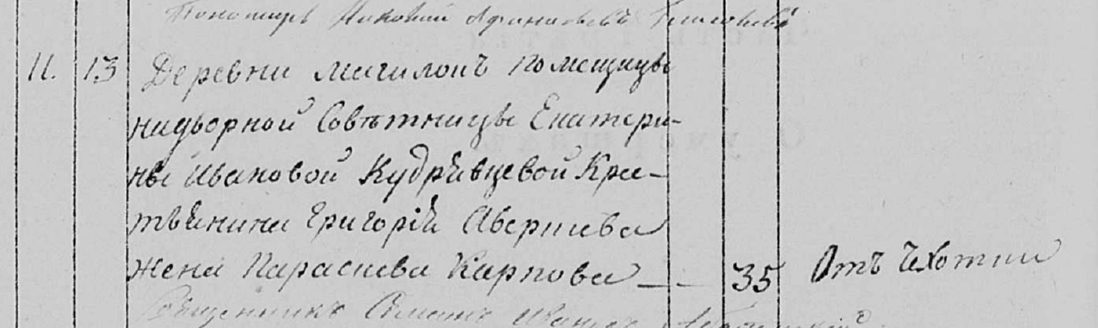 Пономарь Никовай Афонасьевъ
11. 13 Деревни Мигилонъ помещицы
надворной Совѣтницы Екатери-
ны Ивановой Кудрявцевой Кре-
стьянина Григорія Аверьиева
жена Параскева Карпова — 35 Отъ Чехотки
Священникъ Симонъ Ивановъ